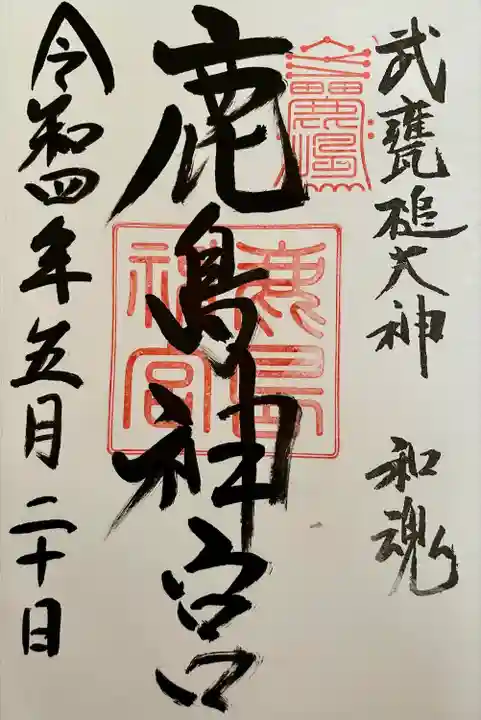 武甕槌大神 和魂
鹿島神宮
鹿島
神宮
令和四年五月二十日